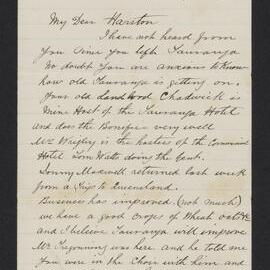 My Dear Harston
I have not heard from
you since you left Tauranga
No doubt you are anxious to know
how old Tauranga is getting on.
Your old landlord Chadwick is
Mine Host of the Tauranga Hotel
and does the Boniface very well
Mrs Wrigley is the hostess of the Commercial
Hotel Tom Watts doing the Gent.
Sonny Maxwell returned last week
from a trip to Queensland.
Business has improved (not much)
we have a good crops of Wheat oats &c
and I believe Tauranga will improve
Mr Tregonning was here and he told me
you were in the Choir with him and